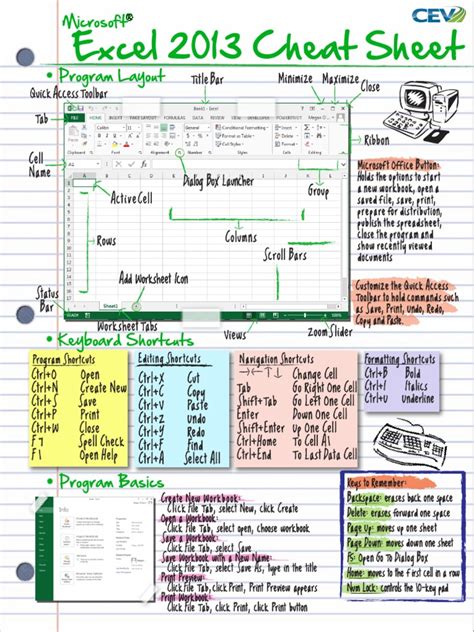 CEV
Microsoft®
Excel 2013 Cheat Sheet
• Program Layout
Title Bar
Minimize
Maximize
Close
Quick Access Toolbar
Tab
Ribbon
Cell
Name
Dialog Box Launcher
Group
Active Cell
Rows
Columns
Scroll Bars
Add Worksheet Icon
Status
Bar
Worksheet Tabs
Views
Zoom Slider
Book1 - Excel
FILE HOME INSERT PAGE LAYOUT FORMULAS DATA REVIEW VIEW
Conditional Formatting
Format as Table
Cell Styles
Clipboard
Font
Alignment
Number
Styles
Cells
Editing
A1
Sheet1
Microsoft Office Button:
Holds the options to start
a new workbook, open a
saved file, save, print,
prepare for distribution,
publish the spreadsheet,
close the program and
show recently viewed
documents
Customize the Quick Access
Toolbar to hold commands such
as Save, Print, Undo, Redo,
Copy and Paste.
• Keyboard Shortcuts
Program Shortcuts
Ctrl+O Open
Ctrl+N Create New
Ctrl+S Save
Ctrl+P Print
Ctrl+W Close
F7 Spell Check
F1 Open Help
Editing Shortcuts
Ctrl+X Cut
Ctrl+C Copy
Ctrl+V Paste
Ctrl+Z Undo
Ctrl+Y Redo
Ctrl+F Find
Ctrl+A Select All
Navigation Shortcuts
Change Cell
Tab Go Right One Cell
Shift+Tab Go Left One Cell
Enter Down One Cell
Shift+Enter Up One Cell
Ctrl+Home To Cell A1
Ctrl+End To Last Data Cell
Formatting Shortcuts
Ctrl+B Bold
Ctrl+I Italics
Ctrl+U Underline
• Program Basics
Info
Create New Workbook:
Click File Tab, select New, click Create
Open a Workbook:
Click File Tab, select open, choose workbook
Save a Workbook:
Click File Tab, select Save
Save Workbook with a New Name:
Click File Tab, select Save As, type in the title
Print Preview:
Click File Tab, click Print, Print Preview appears
Print a Workbook:
Click File Tab, click Print, click Print Button
Keys to Remember:
Backspace: erases back one space
Delete: erases forward one space
Page Up: moves up one sheet
Page Down: moves down one sheet
F5: Open Go To Dialog Box
Home: moves to the first cell in a row
Num Lock: controls the 10-key pad